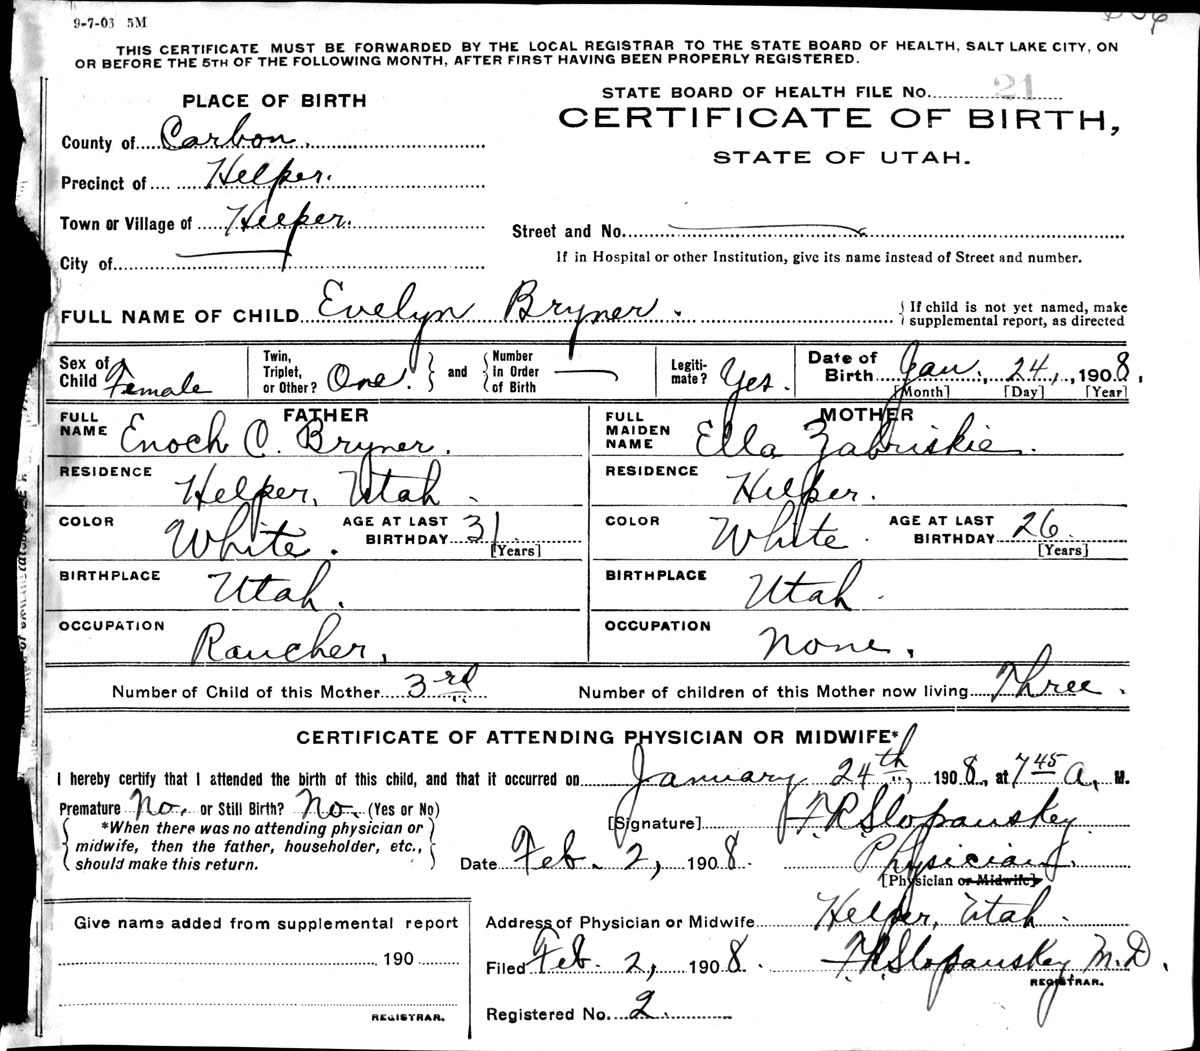 9-7-03 5M
THIS CERTIFICATE MUST BE FORWARDED BY THE LOCAL REGISTRAR TO THE STATE BOARD OF HEALTH, SALT LAKE CITY, ON
OR BEFORE THE 5TH OF THE FOLLOWING MONTH, AFTER FIRST HAVING BEEN PROPERLY REGISTERED.
PLACE OF BIRTH
STATE BOARD OF HEALTH FILE No. 21
CERTIFICATE OF BIRTH,
STATE OF UTAH.
County of Carbon.
Precinct of Helper.
Town or Village of Helper.
City of
Street and No.
If in Hospital or other Institution, give its name instead of Street and number.
FULL NAME OF CHILD Evelyn Bryner.
{ If child is not yet named, make
supplemental report, as directed
Sex of Child Female
Twin, Triplet, or Other? One. } and { Number in Order of Birth
Legiti-mate? Yes.
Date of Birth Jan. 24, 1908,
[Month] [Day] [Year]
FATHER
FULL NAME Enoch C. Bryner.
RESIDENCE Helper, Utah.
COLOR White. AGE AT LAST BIRTHDAY 31 [Years]
BIRTHPLACE Utah.
OCCUPATION Rancher,
MOTHER
FULL MAIDEN NAME Ella Zabriskie.
RESIDENCE Helper.
COLOR White. AGE AT LAST BIRTHDAY 26 [Years]
BIRTHPLACE Utah.
OCCUPATION None.
Number of Child of this Mother 3rd Number of children of this Mother now living Three.
CERTIFICATE OF ATTENDING PHYSICIAN OR MIDWIFE*
I hereby certify that I attended the birth of this child, and that it occurred on January 24th, 1908, at 7 45 A. M.
Premature No. or Still Birth? No. (Yes or No)
{ *When there was no attending physician or
midwife, then the father, householder, etc.,
should make this return. }
[Signature] F. R. Slopanskey
Date Feb. 2, 1908. Physician.
[Physician or Midwife]
Address of Physician or Midwife Helper, Utah.
Filed Feb. 2, 1908. F. R. Slopanskey M.D.
REGISTRAR.
Registered No. 2
Give name added from supplemental report
190
REGISTRAR.